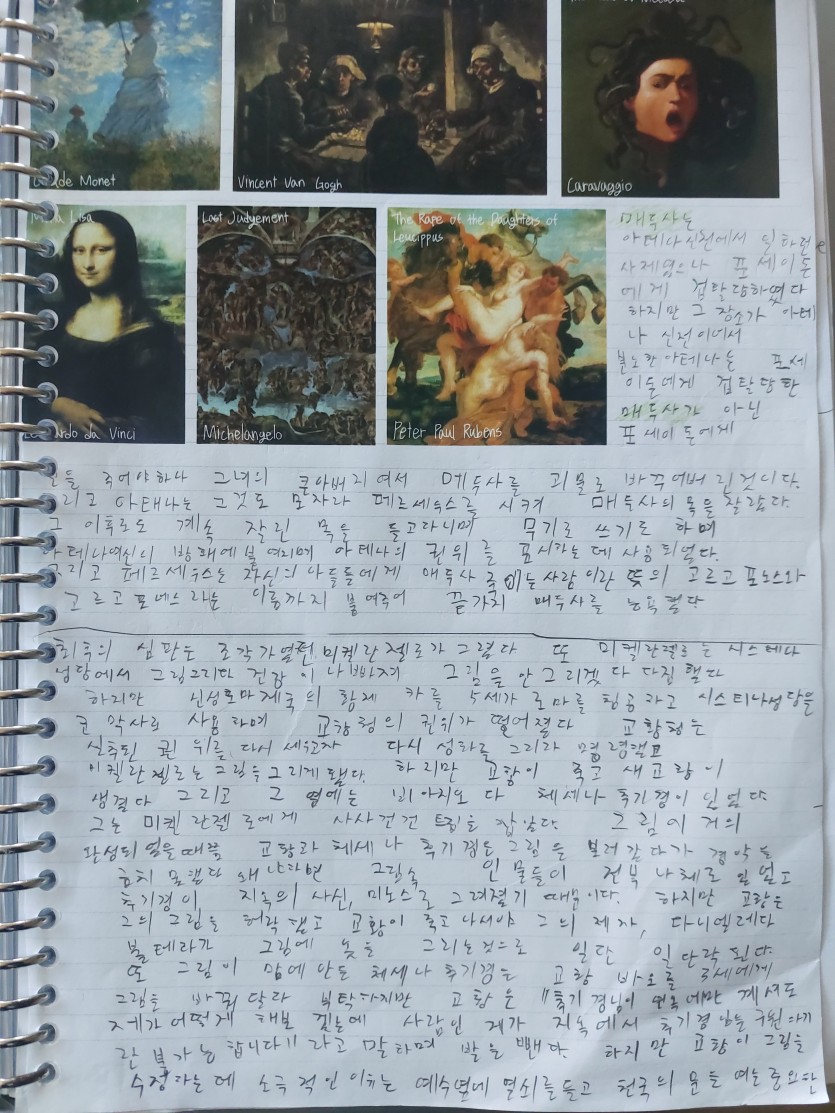 de Monet
Vincent Van Gogh
Caravaggio
Lisa
Last Judgement
The Rape of the Daughters of
Leucippus
do da Vinci
Michelangelo
Peter Paul Rubens
매두사는
아테나신전에서 일하런
사제였으나 포세이돈
에게 겁탈당하였다
하지만 그 장소가 아테
나 신전이여서
분노한아테나는 포세
이돈에게 겁탈당한
매두사가 아닌
포세이돈에게
죽어야하나 그녀의 큰아버지여서 메두사를 괴물로 바꾸어버린것니다.
그리고 아태나는 그것도 모자라 페르세우스를 시켜 매두사의 목을 잘랐다.
그 이후로도 계속 잘린 목을 들고다니며 무기로 쓰기도 하며
아테나여신의 방패에붙여지며 아테나의 권위를 표시하는데 사용되었다.
그리고 페르세우스는 자신의 아들들에게 매두사 죽이는사람이란 뜻의 고르고포노스와
고르고포네스라는 이름까지 붙여주어 끝가지 매두사를 능욕했다
최후의 심판는 조각가였던 미켈란젤로가 그렸다 또 미켈란젤로는 시스테나
성당에서 그림그리다 건강이나빠져 그림을안그리겠다 다짐했다
하지만 신성로마제국의 황제 카를 5세가 로마를 침공하고 시스티나성당을
큰 막사로 사용하며 교황청의 권위가 떨어졌다 교황청는
실추된 권위를 다시 세우고자 다시 성화를 그리라 명령했고
미켈란젤로는그림을그리게됐다. 하지만 교황이 죽고 새교황이
생겼다 그리고 그 옆에는 비아지오 다 체세나 추기경이 있었다.
그는 미켈란젤로에게 사사건건 트집을 잡았다. 그림이 거의
완성되었을때쯤 교황과 체세나 추기경은 그림을 보러갔다가 경악을
금치 못했다 왜냐하면 그림속 인물들이 전부 나체로 있었고
추기경이 지옥의 사신, 미노스로 그려졌기 때문이다. 하지만 교황은
그의 그림을 허락했고 교황이 죽고나서야 그의 제자, 다니엘레다
볼테라가 그림에 옷을 그리는것으로 일단 일단락 된다.
또 그림이 맘에안든 체세나추기경은 교황 바오로 3세에게
그림을 바꿔달라 부탁하지만 교황은 "추기경님이 연옥에만 계셔도
제가어떻게 해보겠는데 사람인 제가 지옥에서 추기경님을구원하기
란 불가능합니다"라고 말하며 발을뺀다. 하지만 교황이 그림을
수정하는데 소극적인이유는 예수옆에 열쇠를들고 천국의 문을 여는중요한